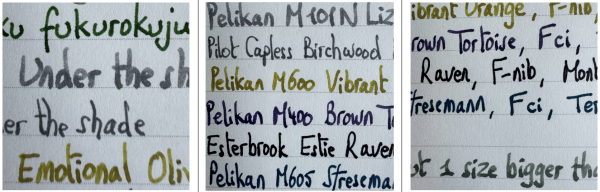 ku fukurokuju
Under the sh
er the shade
Emotional Oliv
Pelikan M101N Liz
Pilot Capless Birchwood
Pelikan M600 Vibrant
Pelikan M400 Brown T
Esterbrook Estie Raven
Pelikan M605 Stresema
ibrant Orange, F-nib,
rown Tortoise, Fci,
Raven, F-nib, Mont
tresemann, Fci, Ter
ot 1 size bigger tha